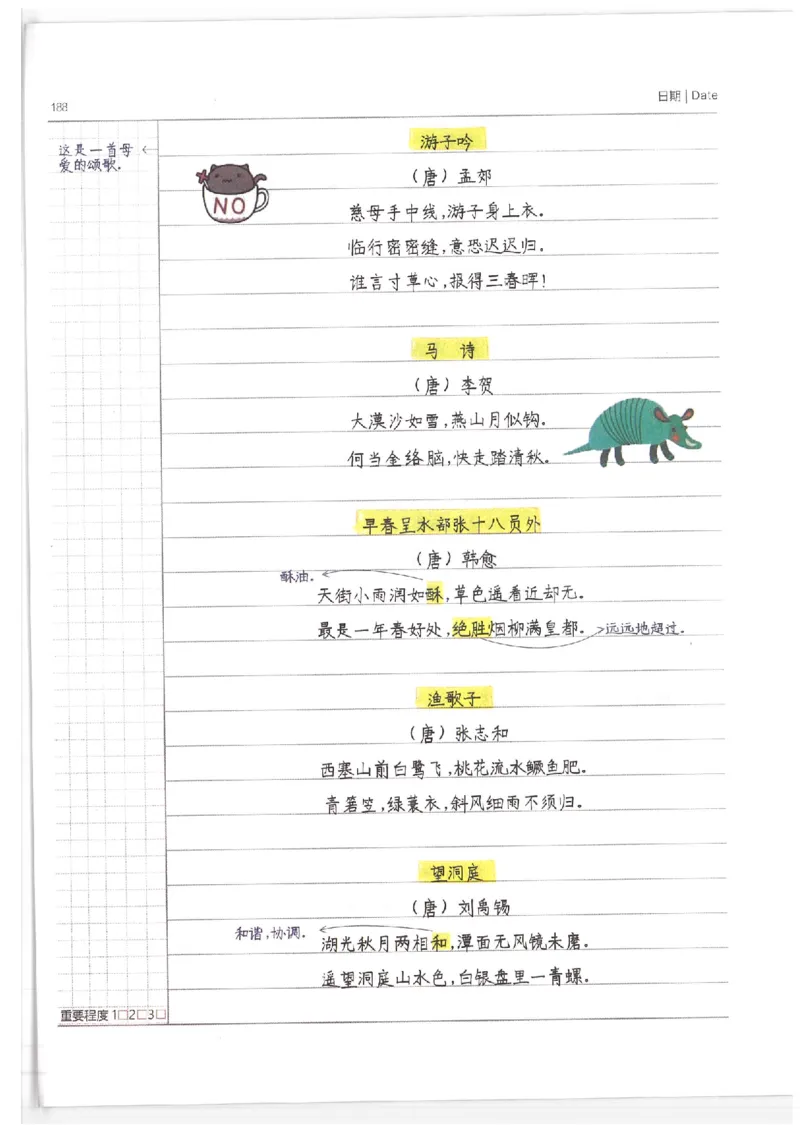 188
日期 | Date
这是一首母
爱的颂歌.
NO
游子吟
(唐)孟郊
慈母手中线,游子身上衣.
临行密密缝,意恐迟迟归.
谁言寸草心,报得三春晖!
马 诗
(唐)李贺
大漠沙如雪,燕山月似钩.
何当金络脑,快走踏清秋.
早春呈水部张十八员外
(唐)韩愈
酥油.
天街小雨润如酥,草色遥看近却无.
最是一年春好处,绝胜烟柳满皇都. >远远地超过.
渔歌子
(唐)张志和
西塞山前白鹭飞,桃花流水鳜鱼肥.
青箬笠,绿蓑衣,斜风细雨不须归.
望洞庭
(唐)刘禹锡
和谐,协调.
湖光秋月两相和,潭面无风镜未磨.
遥望洞庭山水色,白银盘里一青螺.
重要程度 1□2□3□